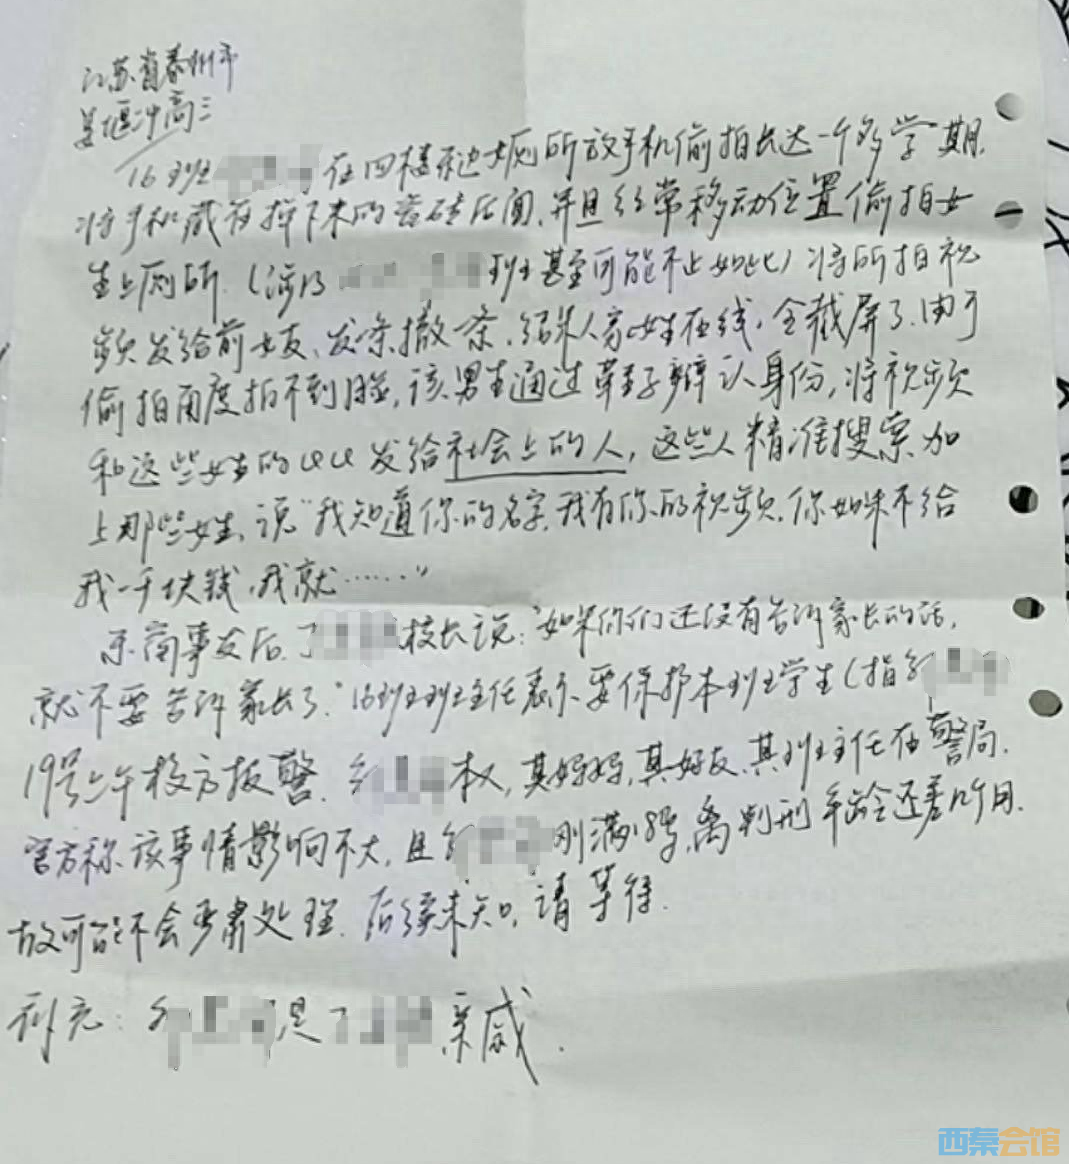 江苏省泰州市
姜堰中高三
16班 在四楼东边女厕所放手机偷拍长达一个多学期.
将手机藏在掉下来的瓷砖后面,并且经常移动位置偷拍女
生上厕所.(涉及 班甚至可能不止如此)将所拍视
频发给前女友、发一条撤一条.结果人家女生在线,全截屏了.由于
偷拍角度拍不到脸,该男生通过鞋子辨认身份,将视频
和这些女生的QQ发给社会上的人,这些人精准搜索加
上那些女生,说"我知道你的名字,我有你的视频.你如果不给
我一千块钱,我就……"
东窗事发后. 校长说:"如果你们还没有告诉家长的话,
就不要告诉家长了."16班班主任表示要保护本班学生(指
19号上午校方报警. 本人,其妈妈,其好友、其班主任在警局.
官方称该事情影响不大,且 刚满18岁,离判刑年龄还差几个月.
故可能不会严肃处理.后续未知,请等待.
补充: 是 亲戚.
西秦会馆